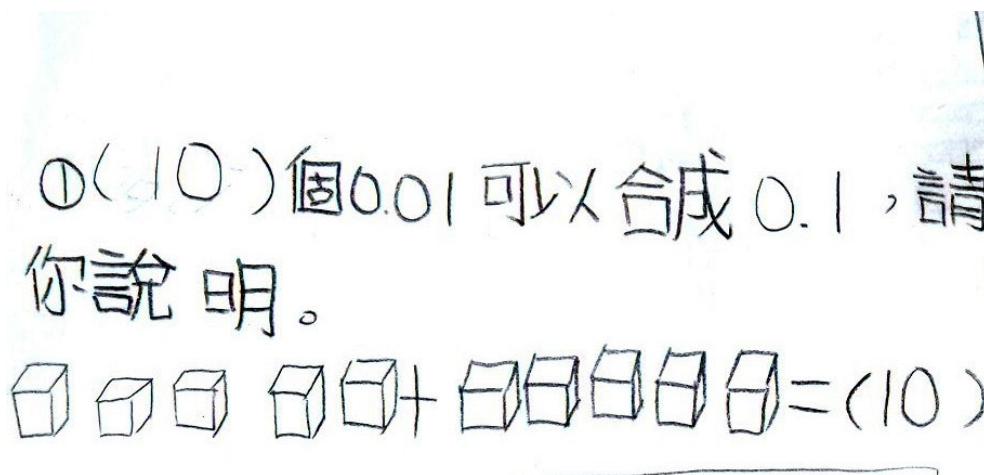 ①(10)個0.01可以合成0.1，請
你說明。
+=(10)